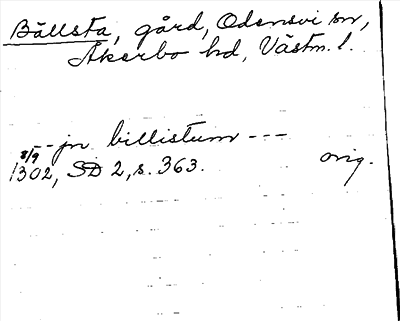 Bällsta, gård, Odensvi sn,
Åkerbo hd, Västm. l.
-- jn billistum ---
8/9
1302, SD 2, s. 363. orig.